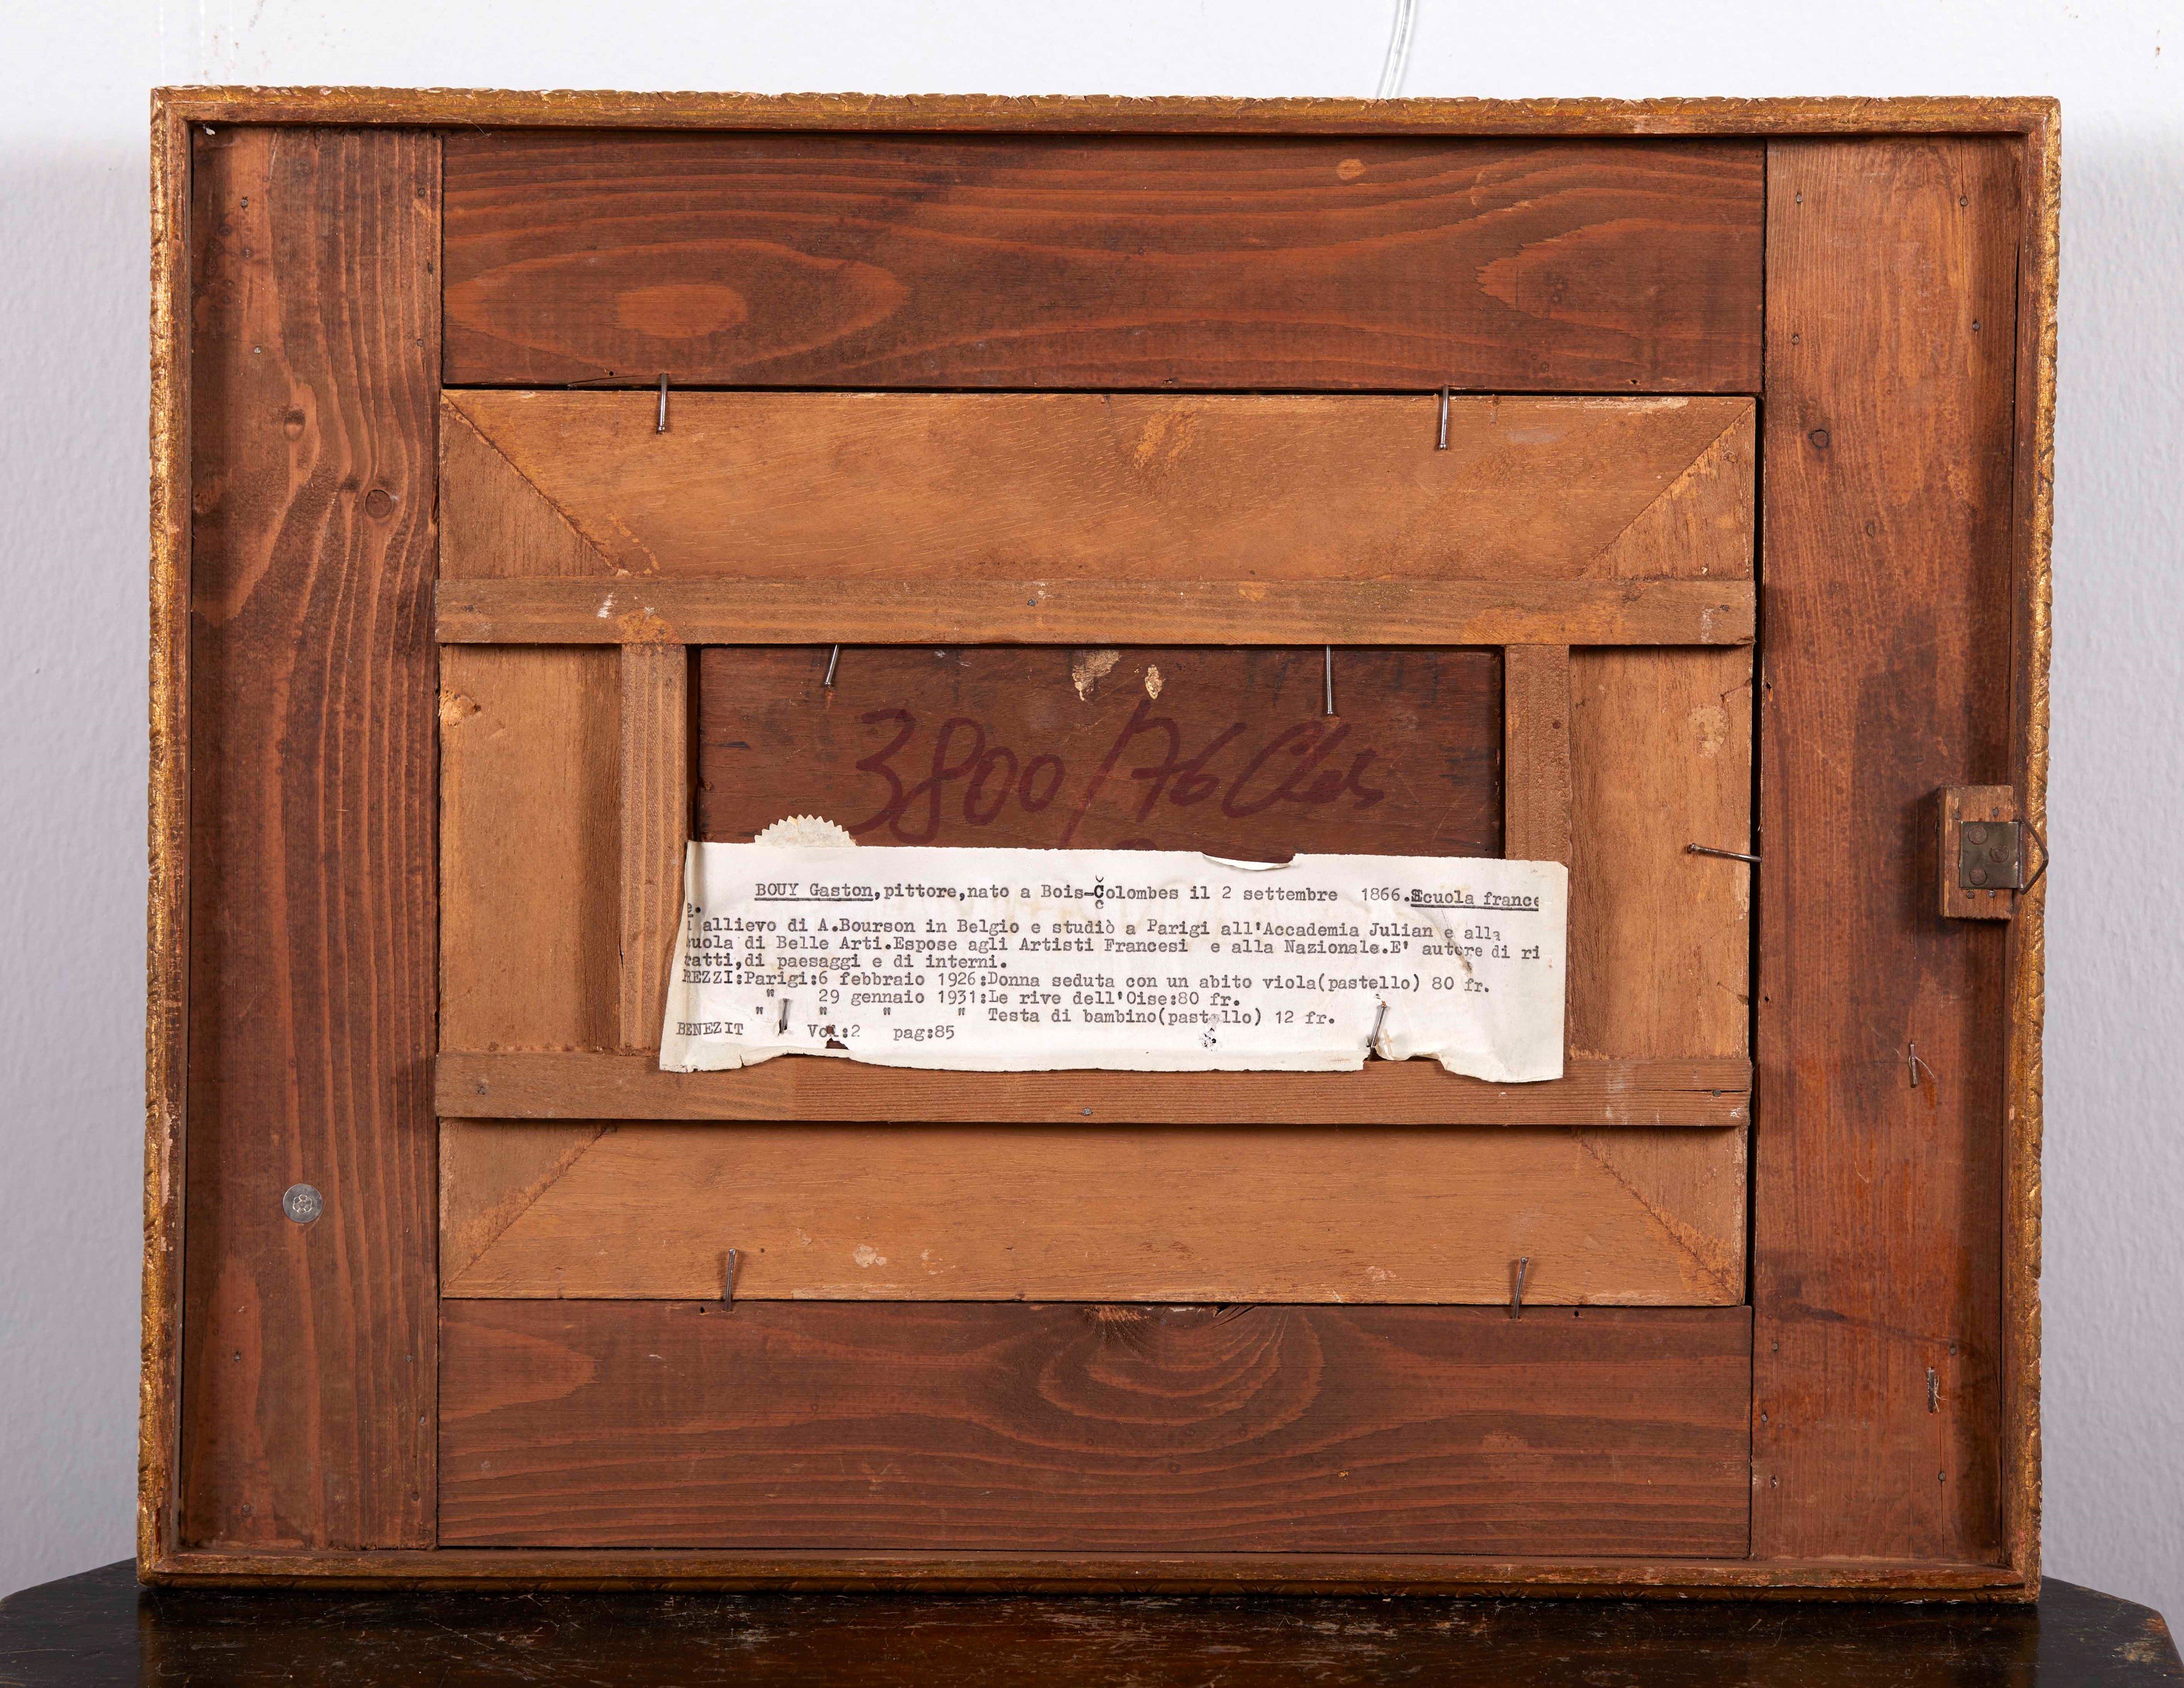 3800/76
BOUY Gaston,pittore,nato a Bois-Colombes il 2 settembre 1866.Scuola france
e.
allievo di A.Bourson in Belgio e studiò a Parigi all'Accademia Julian e alla
uola di Belle Arti.Espose agli Artisti Francesi e alla Nazionale.E' autore di ri
ratti,di paesaggi e di interni.
REZZI:Parigi:6 febbraio 1926:Donna seduta con un abito viola(pastello) 80 fr.
" 29 gennaio 1931:Le rive dell'Oise:80 fr.
" " " " Testa di bambino(pastello) 12 fr.
BENEZIT Vol:2 pag:85